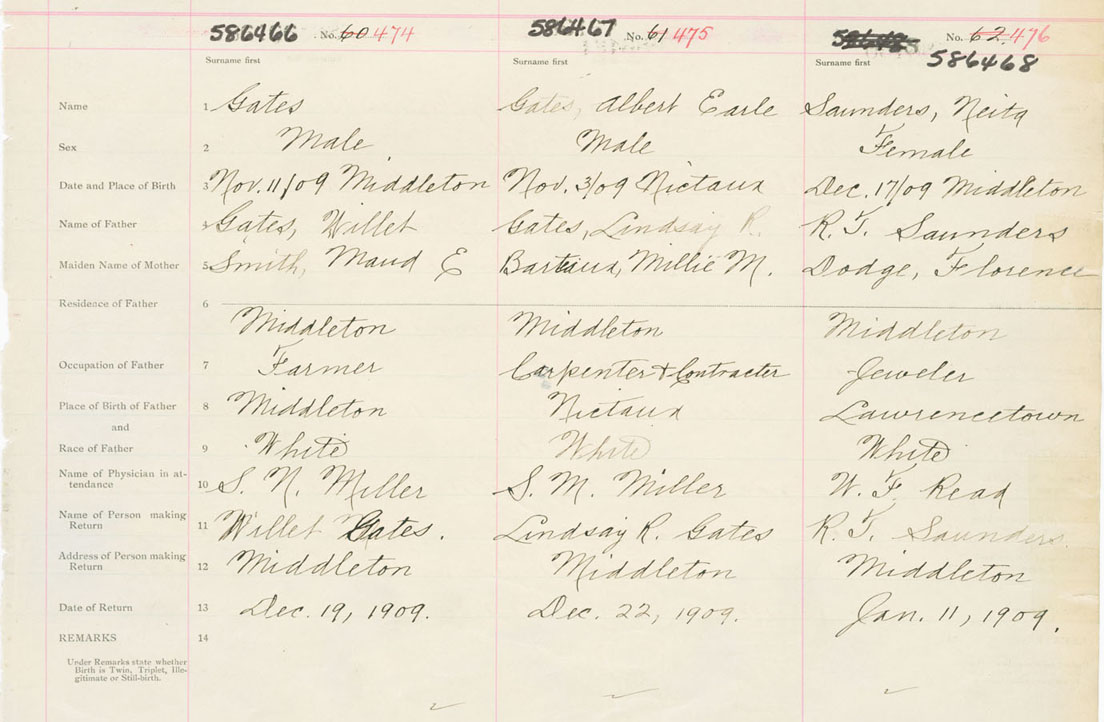 586466 No. 60 474 586467 No. 61 475 No. 62. 476
586468
Surname first Surname first Surname first
Name 1 Gates Gates, Albert Earle Saunders, Neita
Sex 2 Male Male Female
Date and Place of Birth 3 Nov. 11/09 Middleton Nov. 3/09 Nictaux Dec. 17/09 Middleton
Name of Father 4 Gates, Willet Gates, Lindsay R. R. T. Saunders
Maiden Name of Mother 5 Smith, Maud E Barteaux, Millie M. Dodge, Florence
Residence of Father 6
Middleton Middleton Middleton
Occupation of Father 7 Farmer Carpenter & Contracter Jeweler
Place of Birth of Father 8 Middleton Nictaux Lawrencetown
and
Race of Father 9 White White White
Name of Physician in at-
tendance 10 S. N. Miller S. M. Miller W. F. Read
Name of Person making
Return 11 Willet Gates. Lindsay R. Gates R. T. Saunders
Address of Person making
Return 12 Middleton Middleton Middleton
Date of Return 13 Dec. 19, 1909. Dec. 22, 1909. Jan. 11, 1909.
REMARKS 14
Under Remarks state whether
Birth is Twin, Triplet, Ille-
gitimate or Still-birth.